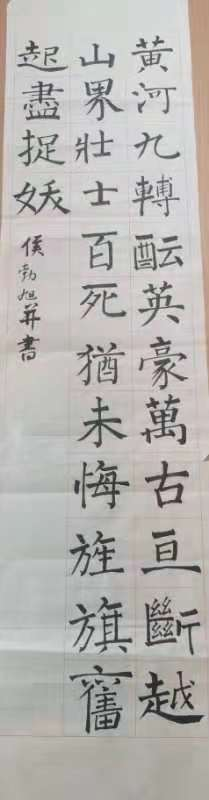 黃河九轉酝英豪萬古亘斷越
山界壯士百死猶未悔旌旗奮
起盡捉妖
侯勃旭并書